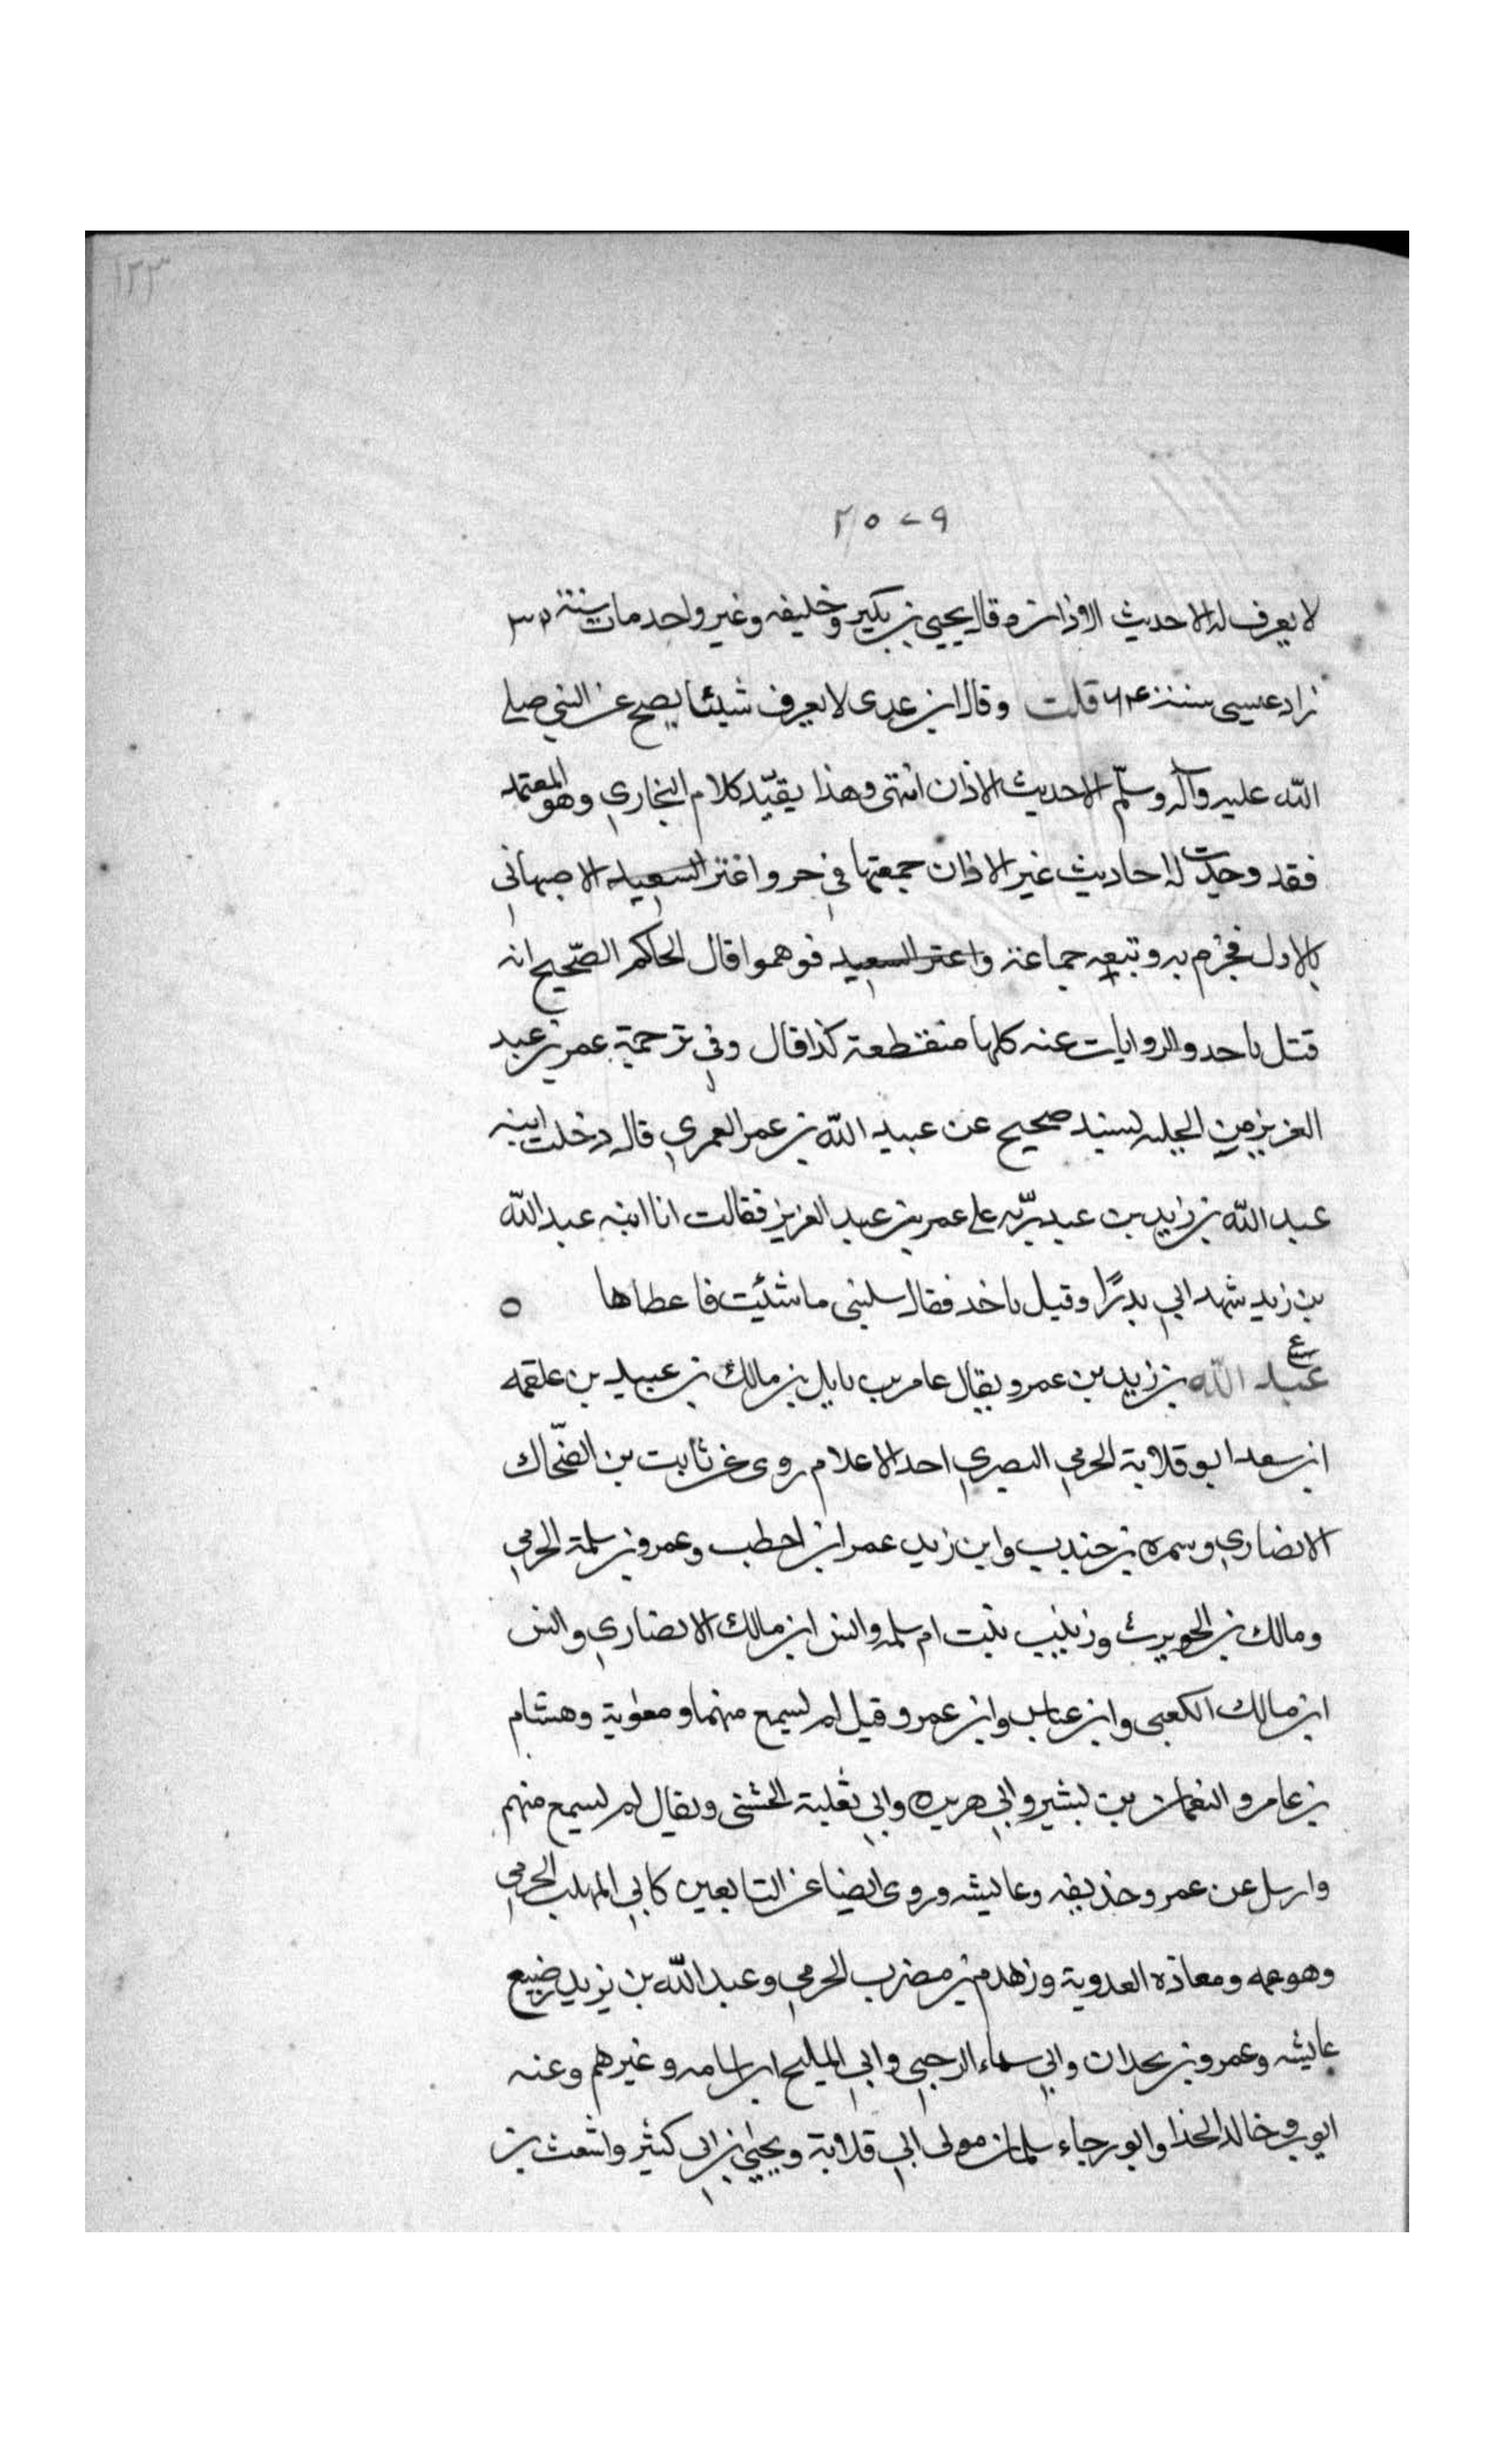 ١٢٣
٢٥٠٩
لا يعرف له الا حديث الاذان وقال يحيى بن بكير وخليفه وغير واحد مات سنة ٣٢
زاد عيسى سنة ٦٤ قلت وقال ابن عدى لا يعرف شيئا يصح عن النبي صلى
الله عليه وآله وسلّم الا حديث الاذان انتهى وهذا يقيّد كلام البخاري وهو المعتمد
فقد وجدت له احاديث غير الاذان جمعتها في جزو اغتر السعيد الاصبهاني
بالاول فجزم به وتبعه جماعة واغتر السعيد فوهموا قال الحاكم الصّحيح انه
قتل باحد والروايات عنه كلها منقطعة كذا قال وفي ترجمة عمر بن عبد
العزيز من الحليه لسند صحيح عن عبيد الله بن عمر العمري قال دخلت ابنه
عبد الله بن زيد بن عبد ربّه على عمر بن عبد العزيز فقالت انا ابنه عبد الله
بن زيد شهد ابي بدرًا وقيل باحد فقال سليني ما شئيت فاعطاها ٥
ع
عبد الله بن زيد بن عمرو يقال عامر بن نايل بن مالك بن عبيد بن علقمه
ابن سعد ابو قلابة الجرمي البصري احد الاعلام روى عن ثابت بن الضّحاك
الانصاري وسمره بن جندب وابن زيد عمر ابن احطب وعمرو بن سلمة الجرمي
ومالك بن الحويرث وزينب بنت ام سلمه وانس ابن مالك الانصاري وانس
ابن مالك الكعبى وابن عباس وابن عمر وقيل لم يسمع منهما ومعوية وهشام
بن عامر والنعمان بن بشير وابي هريره وابي ثعلبة الخشنى ويقال لم يسمع منهم
وارسل عن عمر وحذيفه وعايشه وروى ايضا عن التابعين كابي المهلب الجرمي
وهو عمه ومعاذه العدوية وزهدم بن مضرب الجرمي وعبد الله بن يزيد رضيع
عايشه وعمرو بن بجدان وابي سماء الرحبي وابي المليح ابن اسامه وغيرهم وعنه
ايوب وخالد الحذا وابو رجاء سلمان مولى ابي قلابة ويحيى بن ابي كثير واشعث بن